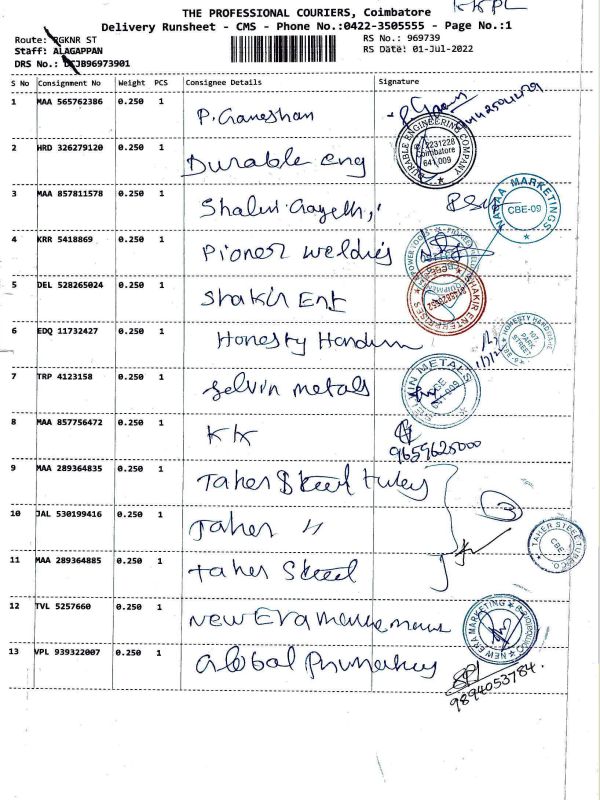 KKPL
THE PROFESSIONAL COURIERS, Coimbatore
Delivery Runsheet - CMS - Phone No.:0422-3505555 - Page No.:1
Route: PGKNR ST
RS No.: 969739
Staff: ALAGAPPAN
RS Date: 01-Jul-2022
DRS No.: DCJB96973901
S No Consignment No Weight PCS Consignee Details Signature
1 MAA 565762386 0.250 1 P. Ganeshan
2 HRD 326279120 0.250 1 Durable eng
DURABLE ENGINEERING COMPANY 2231228 Coimbatore 641 009
3 MAA 857811578 0.250 1 Shalini
NAVAA MARKETINGS CBE-09
4 KRR 5418869 0.250 1 Pioner
5 DEL 528265024 0.250 1 Shakir Ent
SHAKIR ENTERPRISES
6 EDQ 11732427 0.250 1 Honesty
HONESTY HARDWARE 107, PARK STREET
7 TRP 4123158 0.250 1 Selvin metals
SHELWIN METALS CBE 641 009
8 MAA 857756472 0.250 1 KK
9659625000
9 MAA 289364835 0.250 1 Taher Steel
10 JAL 530199416 0.250 1 Taher "
3
TAHER STEEL TUBE CO CBE
11 MAA 289364885 0.250 1 Taher Steel
12 TVL 5257660 0.250 1 New Era
NEW ERA MARKETING
13 VPL 939322007 0.250 1 Global
9894053784.